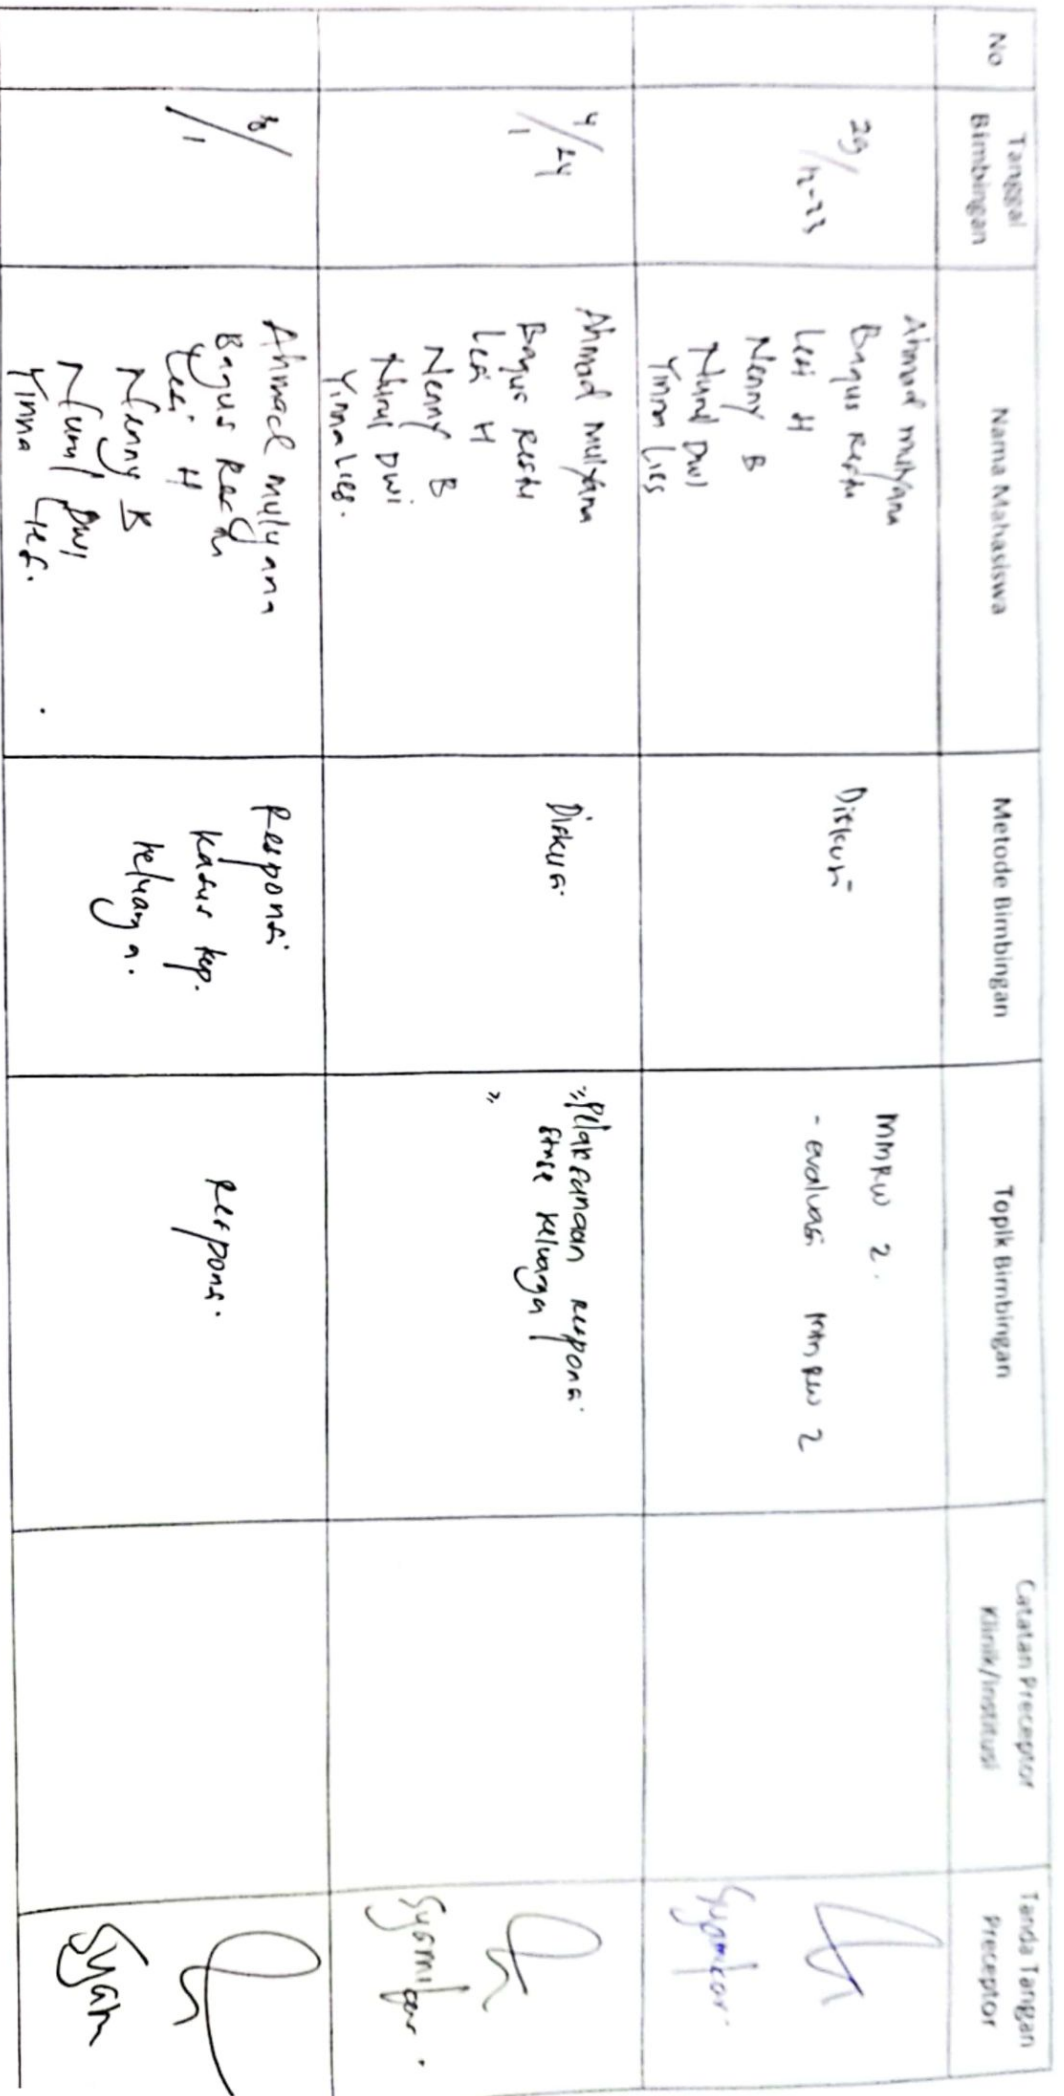 No
Tanggal
Bimbingan
Nama Mahasiswa
Metode Bimbingan
Topik Bimbingan
Catatan Preceptor
Klinik/Institusi
Tanda Tangan
Preceptor
29/12-23
Ahmad Mulyana
Bagus Restu
Lesi H
Nenny B
Nurul Dwi
Yinna Lies
Diskusi
MMRW 2.
- evaluasi MMRW 2
4/24
1
Ahmad Mulyana
Bagus Restu
Lesi H
Nenny B
Nurul Dwi
Yinna Lies.
Diskusi
Pelaksanaan Responsi
Stase keluarga
8/1
Ahmad Mulyana
Bagus Restu
Lesi H
Nenny B
Nurul Dwi
Yinna Lies.
Responsi
kasus kep.
keluarga.
Responsi
Syam